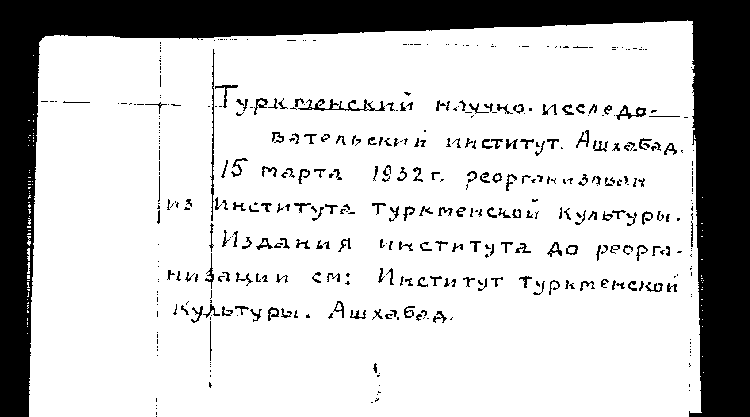 Туркменский научно-исследо-
вательский институт. Ашхабад.
15 марта 1932 г. реорганизован
из Института туркменской культуры.
Издания института до реорга-
низации см: Институт туркменской
культуры. Ашхабад.